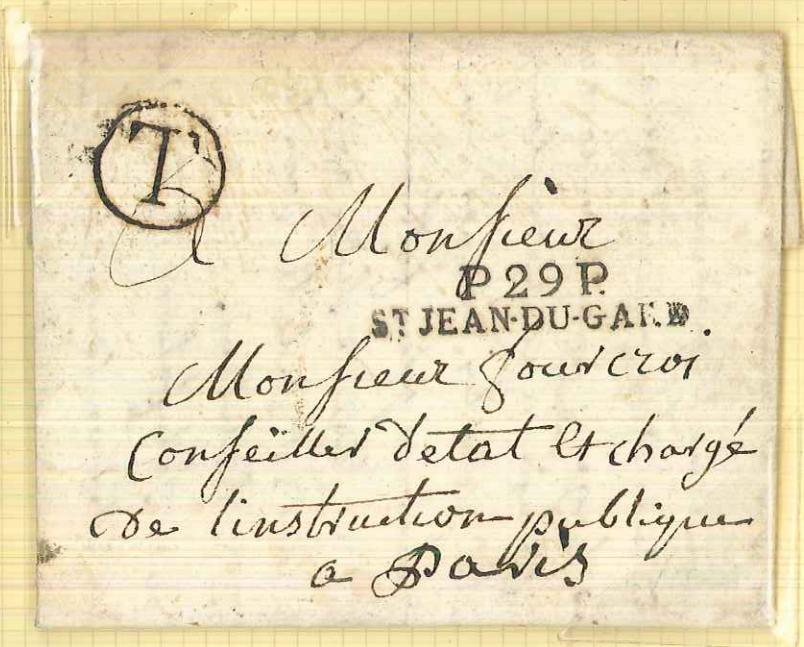 T
A Monsieur
P 29 P.
ST JEAN-DU-GARD.
Monsieur fourcroi
Conseiller detat et chargé
de linstruction publique
a Paris